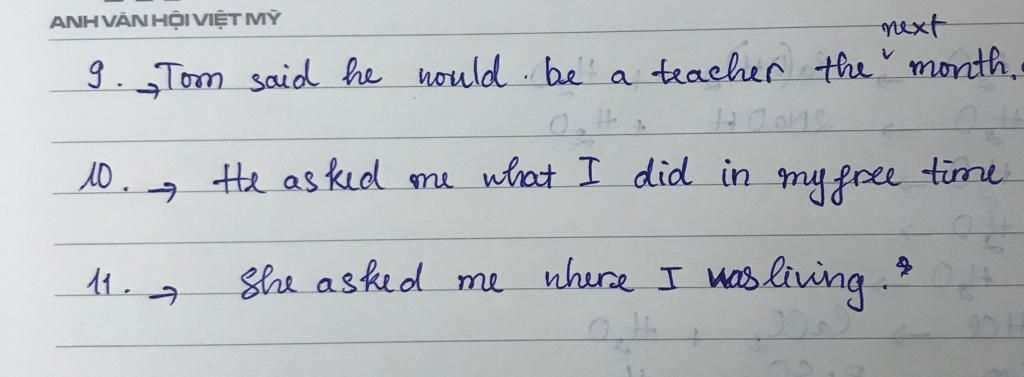 ANH VĂN HỘI VIỆT MỸ
next
9. → Tom said he would be a teacher the ˅ month.
10. → He asked me what I did in my free time
11. → She asked me where I was living.